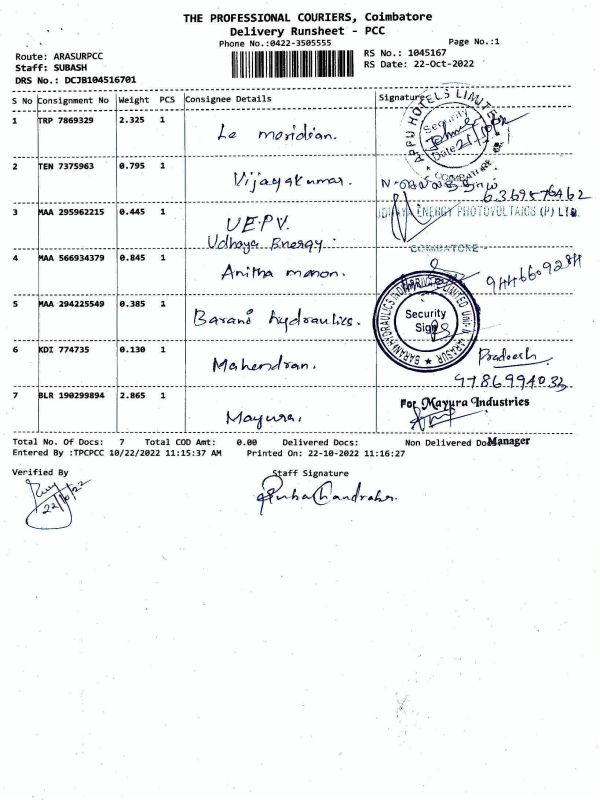 THE PROFESSIONAL COURIERS, Coimbatore
Delivery Runsheet - PCC
Phone No.:0422-3505555
Page No.:1
Route: ARASURPCC
RS No.: 1045167
Staff: SUBASH
RS Date: 22-Oct-2022
DRS No.: DCJB104516701
S No Consignment No Weight PCS Consignee Details Signature
1 TRP 7869329 2.325 1 Le moridian.
APPU HOTELS LIMITED
Security
Date
COIMBATORE
2 TEN 7375963 0.795 1 Vijayakumar.
6369576462
3 MAA 295962215 0.445 1 UEPV.
Udhaya Energy.
UDHAYA ENERGY PHOTOVOLTAICS (P) LTD.
COIMBATORE
4 MAA 566934379 0.845 1 Anitha manon.
5 MAA 294225549 0.385 1 Barani hydraulics.
BARANI HYDRAULICS INDIA PRIVATE LIMITED Unit-IV, ARASUR
Security
Sign
6 KDI 774735 0.130 1 Mahendran.
Pradeesh
9786994033
7 BLR 190299894 2.865 1 Mayura.
For Mayura Industries
Manager
Total No. Of Docs: 7 Total COD Amt: 0.00 Delivered Docs: Non Delivered Docs:
Entered By :TPCPCC 10/22/2022 11:15:37 AM Printed On: 22-10-2022 11:16:27
Verified By
Staff Signature
22/10/22